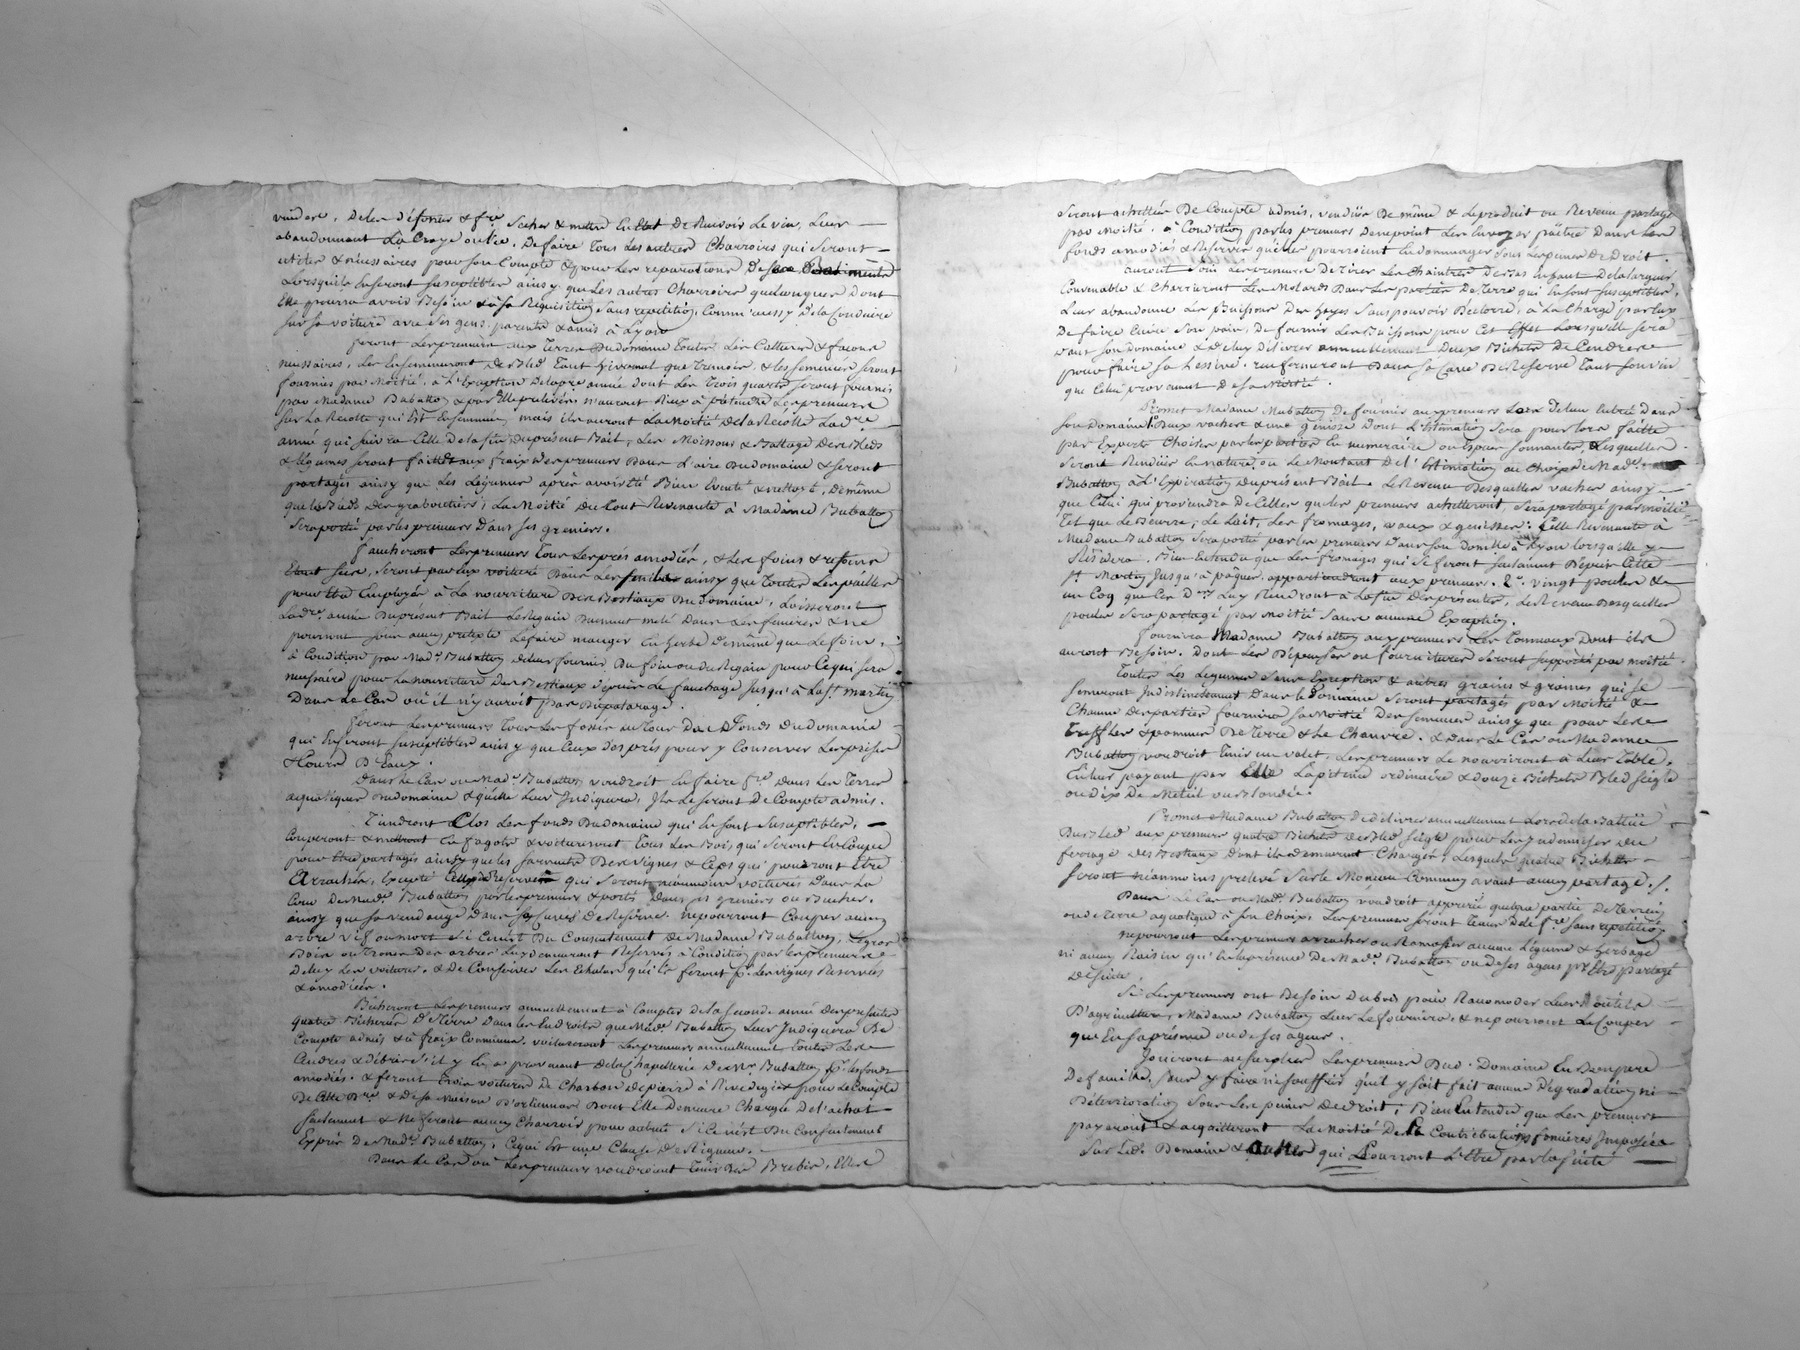 vuidera, de les défonser & fre sécher & mettre en Etat de Recevoir Le vin, Leur
abandonnant La Craze ou Lie. De faire Tous Les autres Charroirs qui seront
utiles & nécessaires pour son Compte & pour Les reparations De ses Batiments
Lorsqu'ils en seront susceptibles ainsy que Les autres Charroirs quelconques Dont
Elle pourra avoir Besoin & à sa Requisition, sans repetition, Comm'aussy De la Conduire
sur sa voiture avec Ses gens, parents & amis à Lyon
feront Les preneurs aux Terres Du domaine Toutes Les Cultures & façons
nécessaires, Les Ensemenceront De Bled Tant hivernal que Tremois, & les semences seront
fournies par Moitié, à L'Exception De la pre année dont Les Trois quarts seront fournis
par Madame Dubattoy & par Elle prélevés n'auront Rien à prétendre Les preneurs
sur La Récolte qui Est Ensemencée, mais ils auront La Moitié De la Récolte La dre
année qui suivra Celle De la fin Du présent Bail, Les Moissons & Battage Des Bleds
& légumes seront faittes aux fraix des preneurs Dans L'aire Du domaine & seront
partagés ainsy que Les Légumes après avoir été Bien Eventé & nettoyé, De même
que les Bleds des grabottiers; La Moitié Du tout Revenante à Madame Dubattoy
Sera porté par les preneurs Dans ses greniers.
faucheront Les preneurs Tous Les prés amodiés, & Les foins & regains
Etant secs, seront par Eux voituré Dans Les fenières ainsy que Toutes Les pailles
pour Etre Employés à La nourriture Des Bestiaux Du domaine, Laisseront
La dre année Du présent Bail Le Regain Duement melé Dans Les fenières & ne
pourront sous aucun prétexte Le faire manger En herbe De même que Le foin,
à Condition par Made Dubattoy de leur fournir Du foin ou du Regain pour Ce qui sera
nécessaire pour La nourriture Des Bestiaux Depuis Le fauchage Jusqu'à La St martin
Dans Le Cas où il n'y auroit pas De paturage.
feront Les preneurs Tous Les fossés autour Des fonds Du domaine
qui En seront susceptibles ainsy que Ceux des prés pour y Conserver Les prises
& Cours D'Eaux.
Dans Le Cas ou Made Dubattoy voudroit En faire fre dans Les Terres
aquatiques Du domaine & qu'Elle Leur Indiquera, Ils Le feront De Compte à demis.
Tiendront Clos Les fonds Du domaine qui En sont susceptibles,
Couperont & mettront En fagots & voitureront Tous Les Bois qui seront En Coupe
pour Etre partagés ainsy que les sarments Des vignes & Ceps qui pourront Etre
Arrachés, Excepté Celles de Réserve qui seront néanmoins voiturés Dans La
Cour De Made Dubattoy par les preneurs & portés Dans ses greniers ou Bucher,
ainsy que sa vendange Dans ses Cuves De Réserve. ne pourront Couper aucun
arbre vif ou mort si Ce n'est Du Consentement De Madame Dubattoy, Le gros
Bois ou Troncs Des arbres Luy demeurant Réservés à Condition par les preneurs
De Luy Les voiturer, & De Conserver Les Echalas qu'ils feront pr les vignes Réservées
& amodiées.
Bécheront Les preneurs annuellement à Compter De la seconde année Des présentes
quatre Bicherées De Terre Dans Les Endroits que Made Dubattoy Leur Indiquera De
Compte à demis & à fraix Communs. voitureront Les preneurs annuellement Toutes Les
Cendres & Débris s'il y En a provenant De la Chapellerie De Mr Dubattoy pr les fonds
amodiés. & feront trois voitures De Charbon de pierre à Rivedegier pour Le Compte
De Cette Dme & De sa Maison D'ortienna Dont Elle Demeure Chargée De l'achat
seulement & Ne feront aucun Charroir pour autrui si Ce n'est Du Consentement
Exprès De Made Dubattoy, Ce qui Est une Clause De Rigueur.
Dans Le Cas où Les preneurs voudroient Tenir Des Brebis, Elles
Seront achettées De Compte à demis, vendües De même & Le produit ou Revenu partagé
par Moitié. à Condition par les preneurs De ne point Les Envoyer paître Dans Les
fonds amodiés & Réservés qu'elles pourroient Endommager sous Les peines De Droit.
auront Soin Les preneurs De Tirer Les Chaintres Des Bas En haut De la largeur
Convenable & Charrieront Les Molards Dans Les parties De Terre qui En sont susceptibles.
Leur abandonne Les Buissons Des hayes Sans pouvoir Declorre, à La Charge par Eux
De faire Cuire Son pain, De fournir Les Buissons pour Cet Effet Lorsqu'elle sera
dans son Domaine & De Luy Délivrer annuellement Deux Bichets De Cendres
pour faire sa Lessive. renfermeront Dans sa Cave De Réserve Tant son vin
que Celui provenant De sa Moitié.
Promet Madame Dubattoy De fournir aux preneurs Lors De leur Entrée Dans
son Domaine 1° Deux vaches & une génisse Dont L'Estimation Sera pour lors faitte
par Experts Choisis par les parties En numéraire ou Espèces sonnantes, Lesquelles
Seront Rendües En nature, ou Le Montant De L'Estimation au Choix De Made
Dubattoy à L'Expiration Du présent Bail. Le Revenu Desquelles vaches ainsy
que Celui qui proviendra De Celles que les preneurs achetteront, Sera partagé par moitié
Tel que Le Beurre, Le Lait, Les fromages, veaux & génisses: Celle Revenante à
Madame Dubattoy sera porté par les preneurs Dans son domicile à Lyon lorsqu'elle y
Résidera. Bien Entendu que Les fromages qui se feront seulement Depuis Cette
St Martin Jusqu'à pâques, appartiendront aux preneurs. 2° vingt poules &
un Coq que Ces Drs Luy Rendront à La fin Des présentes, Le Revenu Desquelles
poules Sera partagé par Moitié Sans aucune Exception.
fournira Madame Dubattoy aux preneurs Les Tonneaux Dont ils
auront Besoin. Dont Les Dépenses ou fournitures Seront supportés par moitié.
Toutes Les Légumes Sans Exception & autres grains & graines qui se
semeront Indistinctement Dans le Domaine seront partagés par Moitié &
Chacune Des parties fournira sa Moitié Des semences ainsy que pour Les
Truffles & pommes De Terre & Le Chanvre. & dans Le Cas ou Madame
Dubattoy voudroit Tenir un valet, Les preneurs Le nourriront à Leur Table,
En leur payant par Elle La pitence ordinaire & douze Bichets Bled seigle
ou dix De Méteil ou Blondée.
Promet Madame Dubattoy De délivrer annuellement Lors De la Battüe
Des Bled aux preneurs quatre Bichets De Bled seigle pour Les Indemniser du
ferrage des Bestiaux dont ils Demeurent Chargés, Lesquels quatre Bichets
seront néanmoins prelevé Sur Le Monceau Commun avant aucun partage./.
Dans Le Cas ou Made Dubattoy voudroit appurer quelque partie De Terrein
ou de Terre aquatique à Son Choix, Les preneurs Seront Tenus De le fre sans repetition
ne pourront Les preneurs arracher ou Ramasser aucune Légume & herbage
ni aucun Raisin qu'En la présence De Made Dubattoy ou De Ses agens pr Etre partagé
De suite.
Si Les preneurs ont Besoin Du bois pour Racomoder Leurs Outils
D'agriculture, Madame Dubattoy Leur Le fournira, & ne pourront Le Couper
que En sa présence ou de ses agens.
Jouiront au surplus Les preneurs Dud. Domaine En Bons pere
De famille, Sans y faire ni souffrir qu'il y soit fait aucune Dégradation ni
Déterioration Sous Les peines De Droit, Bien Entendu que Les preneurs
payeront & acquitteront La Moitié De La Contributions foncières Imposées
Sur Led. Domaine & Autres qui Pourront L'Etre par la suite